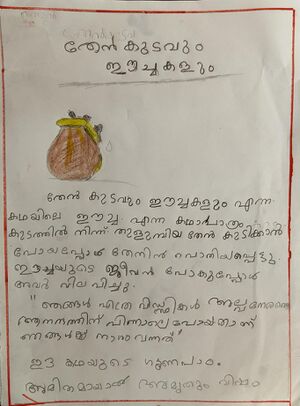 തേൻ കുടവും
ഈച്ചകളും
തേൻ കുടവും ഈച്ചകളും എന്ന
കഥയിലെ ഈച്ച എന്ന കഥാപാത്രം
കുടത്തിൽ നിന്ന് തുളുമ്പിയ തേൻ കുടിക്കാൻ
പോയപ്പോൾ തേനിൽ ഒട്ടിപ്പെട്ടു
ഈച്ചയുടെ ജീവൻ പോകുപ്പോൾ
അവർ വിലപിച്ചു.
"ഞങ്ങൾ എത്ര വിഡ്ഢികൾ അല്പനേരത്തെ
ആനന്ദത്തിന് പിന്നാലെ പോയതാണ്
ഞങ്ങൾക്ക് നാശം വന്നത്"
ഈ കഥയുടെ ഗുണപാഠം.
അമിതമായാൽ അമൃതും വിഷം